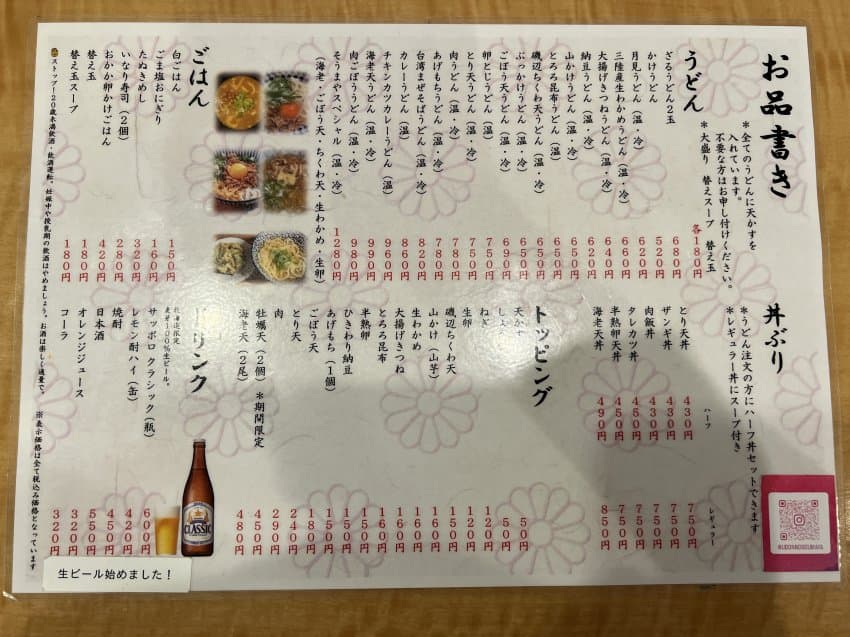 お品書き
＊全てのうどんに天かすを
入れています。
不要な方はお申し付けください。
＊大盛り 替えスープ 替え玉 各180円
うどん
ざるうどん2玉 680円
かけうどん 520円
月見うどん（温・冷） 620円
三陸産生わかめうどん（温・冷） 660円
大揚げきつねうどん（温・冷） 640円
納豆うどん（温・冷） 620円
山かけうどん（温・冷） 650円
とろろ昆布うどん（温・冷） 650円
磯辺ちくわ天うどん（温・冷） 650円
ぶっかけうどん（温・冷） 690円
ごぼう天うどん（温・冷） 650円
卵とじうどん（温） 700円
とり天うどん（温・冷） 750円
肉うどん（温・冷） 780円
あげもちうどん（温・冷） 780円
台湾まぜそばうどん（温・冷） 820円
カレーうどん（温） 860円
チキンカツカレーうどん（温） 960円
海老天うどん（温・冷） 990円
肉ごぼううどん（温・冷） 980円
そうまやスペシャル（温・冷） 1280円
（海老・ごぼう天・ちくわ天・生わかめ・生卵）
ごはん
白ごはん 150円
ごま塩おにぎり 160円
たぬきめし 320円
いなり寿司（2個） 280円
おかか卵かけごはん 420円
替え玉 180円
替え玉スープ 180円
丼ぶり
＊うどん注文の方にハーフ丼セットできます
＊レギュラー丼にスープ付き
ハーフ レギュラー
とり天丼 430円 750円
ザンギ丼 430円 750円
肉飯丼 430円 750円
タレカツ丼 450円 750円
半熟卵天丼 450円 750円
海老天丼 490円 850円
トッピング
天かす 50円
しょうが 50円
ねぎ 120円
生卵 120円
磯辺ちくわ天 150円
山かけ（山芋） 160円
生わかめ 160円
大揚げきつね 160円
とろろ昆布 150円
半熟卵 150円
ひきわり納豆 150円
あげもち（1個） 150円
ごぼう天 180円
とり天 240円
肉 290円
牡蠣天（2個）＊期間限定 450円
海老天（2尾） 480円
ドリンク
北海道限定
麦芽100%生ビール。
サッポロ クラシック（瓶） 600円
レモン酎ハイ（缶） 420円
焼酎 450円
日本酒 550円
オレンジジュース 320円
コーラ 320円
ストップ！20歳未満飲酒・飲酒運転。妊娠中や授乳期の飲酒はやめましょう。お酒は楽しく適量で。 ※表示価格は全て税込み価格となっています
CLASSIC
生ビール始めました！